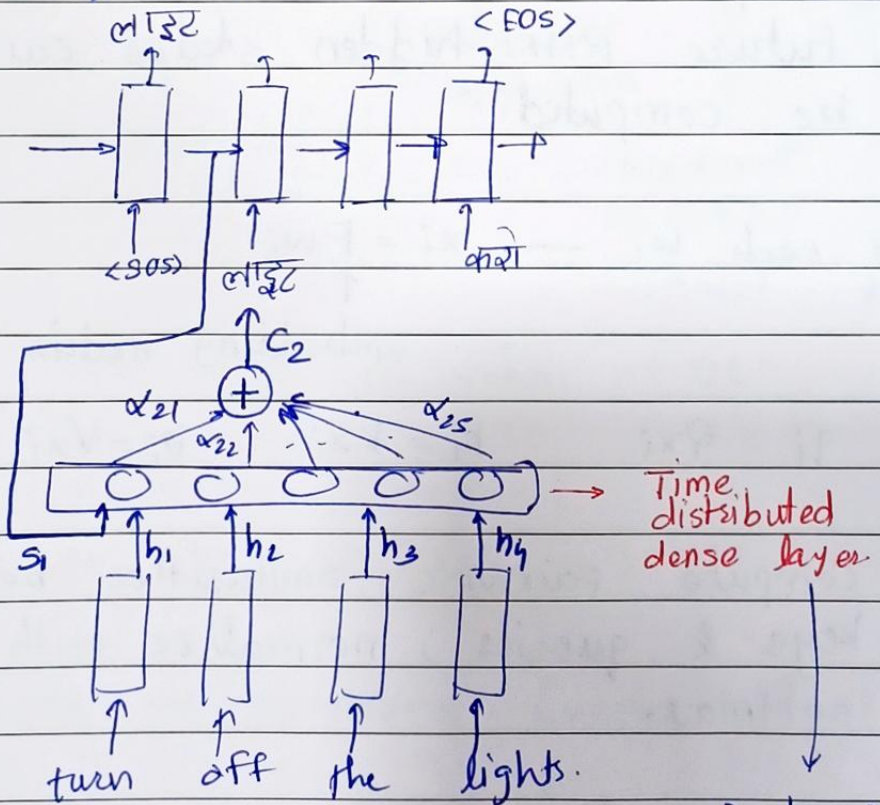 लाईट <EOS>
<SOS> लाईट करो
C₂
α₂₁ α₂₂ α₂₅
→ Time
distributed
dense layer
S₁ h₁ h₂ h₃ h₄
turn off the lights.